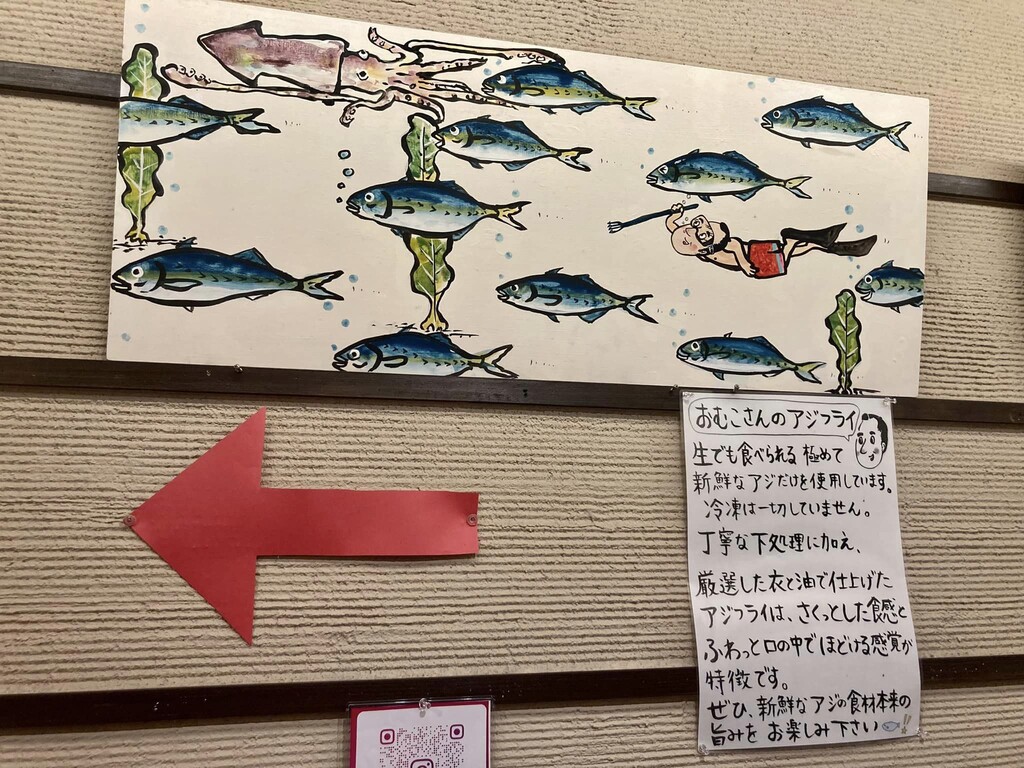 おむこさんのアジフライ
生でも食べられる極めて
新鮮なアジだけを使用しています。
冷凍は一切していません。
丁寧な下処理に加え、
厳選した衣と油で仕上げた
アジフライは、さくっとした食感と
ふわっと口の中でほどける感覚が
特徴です。
ぜひ、新鮮なアジの食材本来の
旨みをお楽しみ下さい!!